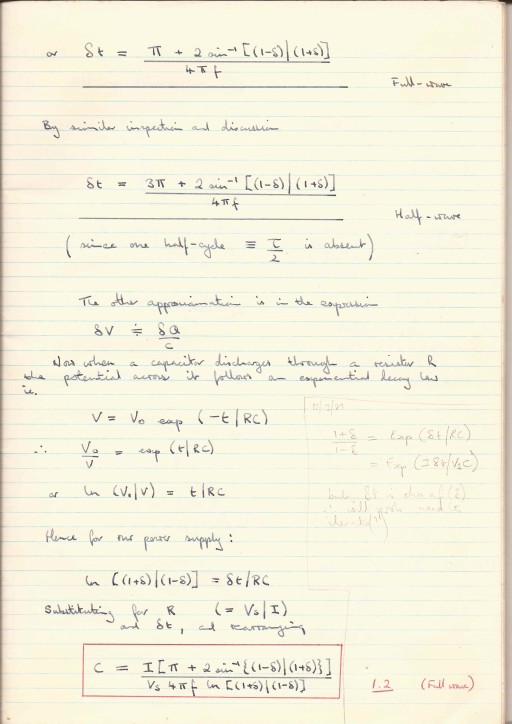 or δt = π + 2 sin⁻¹ [(1-δ)|(1+δ)]
4πf
Full-wave
By similar inspection and discussion
δt = 3π + 2 sin⁻¹ [(1-δ)|(1+δ)]
4πf
Half-wave
(since one half-cycle ≡ τ/2 is absent)
The other approximation is in the expression
δV ≑ δQ/C
Now when a capacitor discharges through a resistor R
the potential across it follows an exponential decay law
i.e.
V = V₀ exp (-t|RC)
∴ V₀/V = exp (t|RC)
or ln (V₀|V) = t|RC
1+δ/1-δ = Exp (δt|RC)
= Exp (Iδt|VₛC)
but δt is
Hence for our power supply:
ln [(1+δ)|(1-δ)] = δt|RC
Substituting for R (= Vₛ|I)
and δt, and rearranging
C = I[π + 2 sin⁻¹{(1-δ)|(1+δ)}]
Vₛ 4πf ln [(1+δ)|(1-δ)]
1.2 (Full wave)